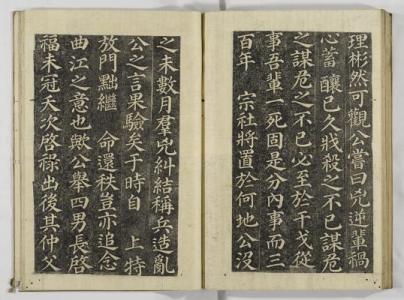 理彬然可觀公嘗曰兇逆輩禍
心蓄釀已久戕殺之不已謀危
之謀危之不已必至於干戈從
事吾輩一死固是分內事而三
百年 宗社將置於何地公沒
之未數月羣兇糾結稱兵造亂
公之言果驗矣于時自 上特
放門黜繼 命還秩豈亦追念
曲江之意也歟公舉四男長啓
福未冠夭次啓祿出後其仲父